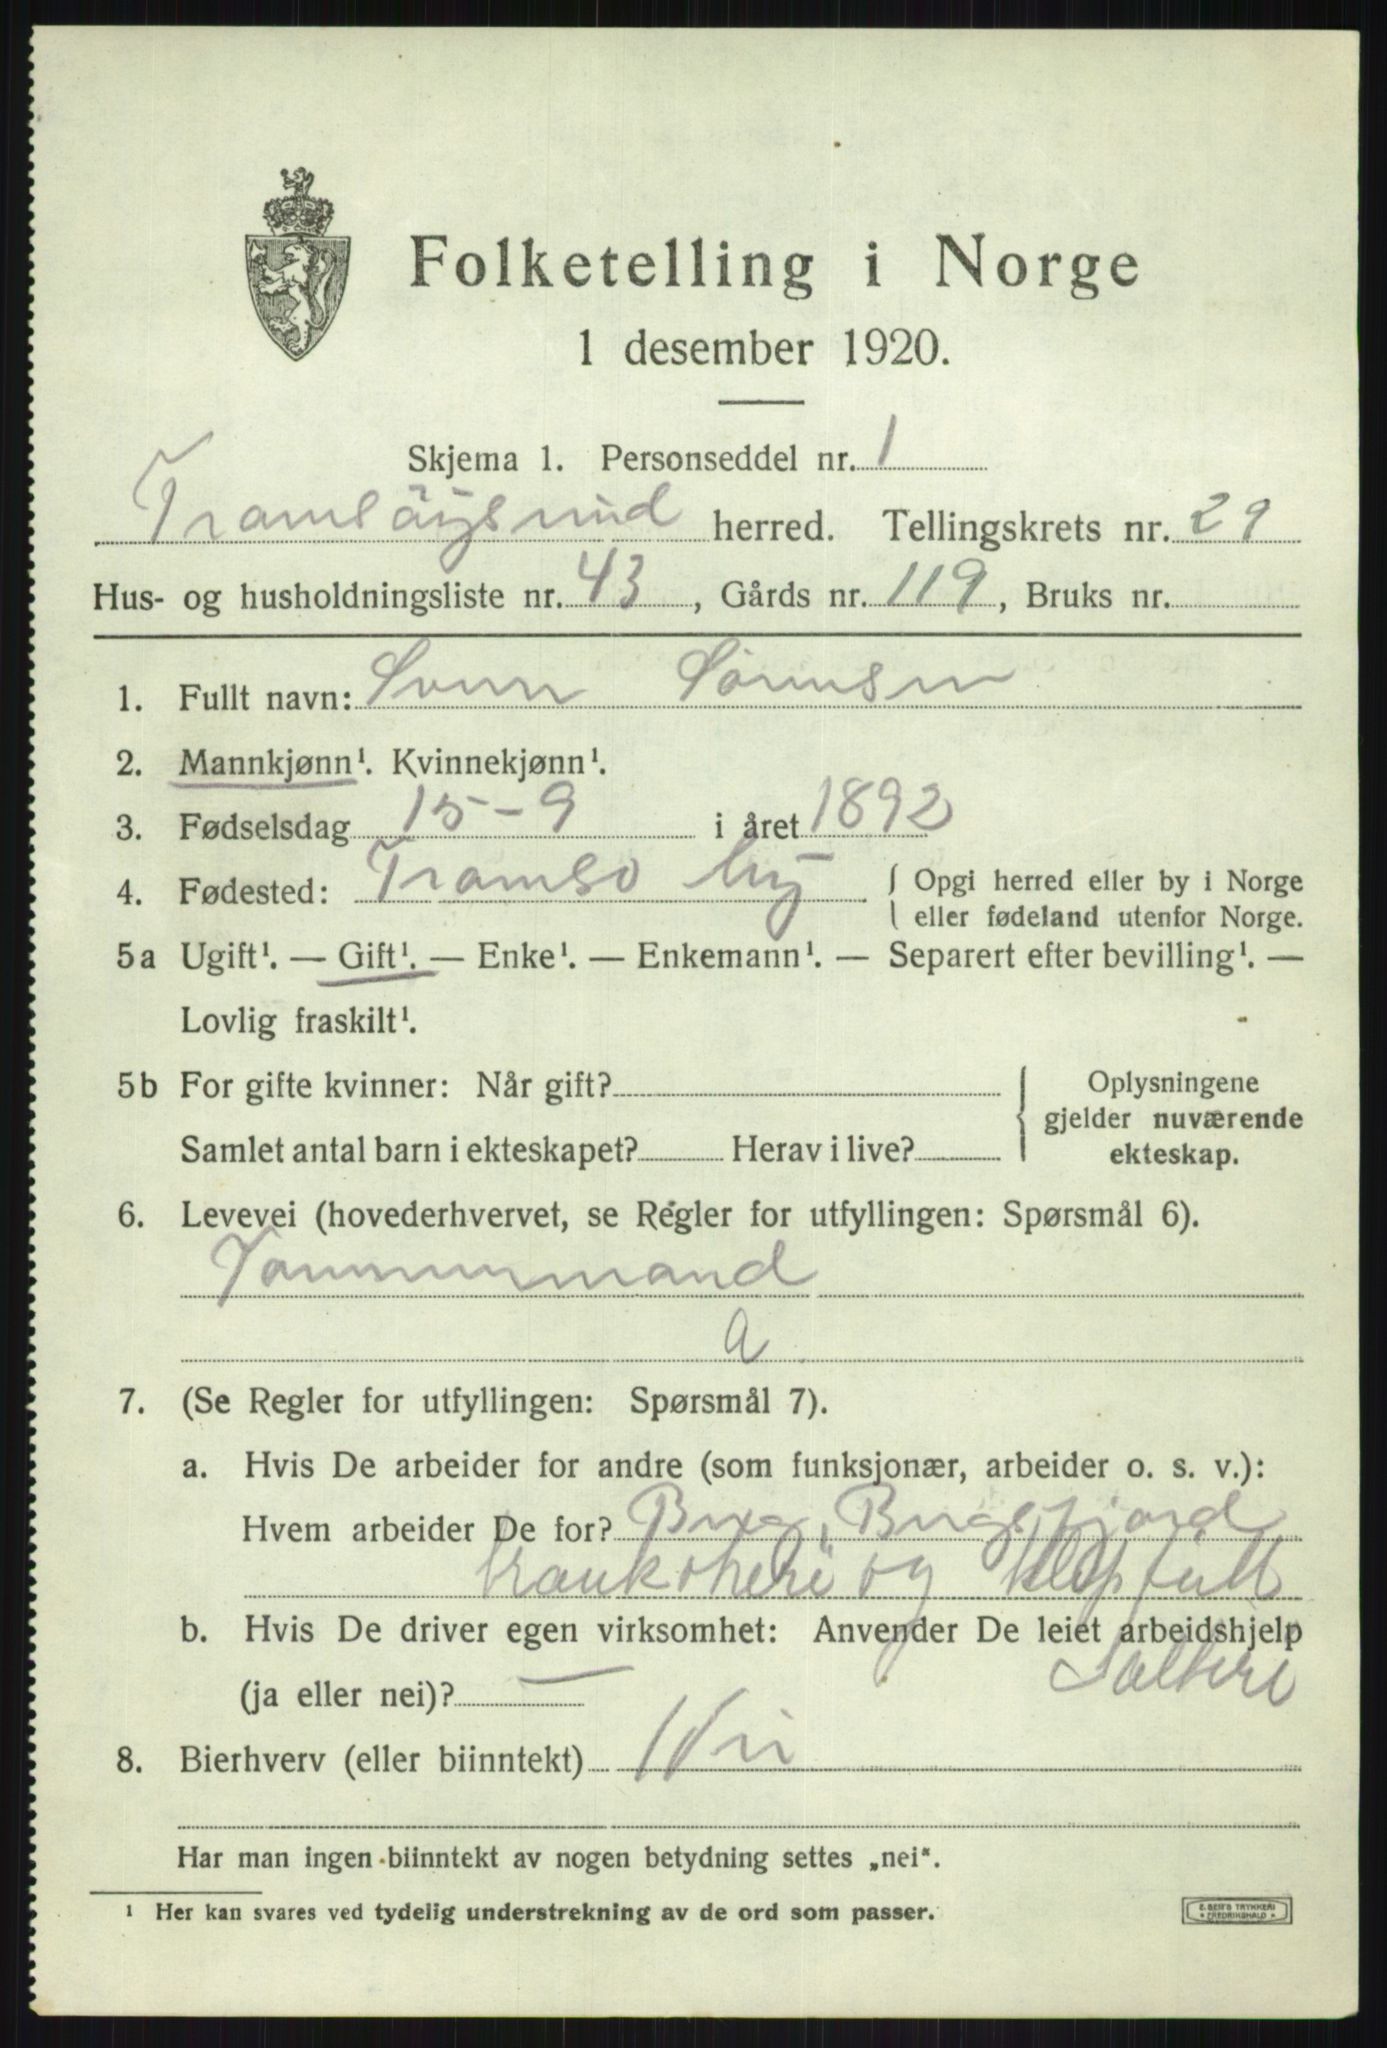 Folketelling i Norge
1 desember 1920.
Skjema 1. Personseddel nr. 1
Tromsöysund herred. Tellingskrets nr. 29
Hus- og husholdningsliste nr. 43, Gårds nr. 119, Bruks nr.
1. Fullt navn: Sörensen
2. Mannkjønn¹. Kvinnekjønn¹.
3. Fødselsdag 15-9 i året 1892
4. Fødested: Tromsø by { Opgi herred eller by i Norge
eller fødeland utenfor Norge.
5a Ugift¹. — Gift¹. — Enke¹. — Enkemann¹. — Separert efter bevilling¹. —
Lovlig fraskilt¹.
5b For gifte kvinner: Når gift? } Oplysningene
gjelder nuværende
Samlet antal barn i ekteskapet? Herav i live? ekteskap.
6. Levevei (hovederhvervet, se Regler for utfyllingen: Spørsmål 6).
Tømmermand
a
7. (Se Regler for utfyllingen: Spørsmål 7).
a. Hvis De arbeider for andre (som funksjonær, arbeider o. s. v.):
Hvem arbeider De for?
og
b. Hvis De driver egen virksomhet: Anvender De leiet arbeidshjelp
Salteri
(ja eller nei)? —
8. Bierhverv (eller biinntekt) Nei
Har man ingen biinntekt av nogen betydning settes „nei“.
¹ Her kan svares ved tydelig understrekning av de ord som passer.
E. SEM'S TRYKKERI
FREDRIKSHALD